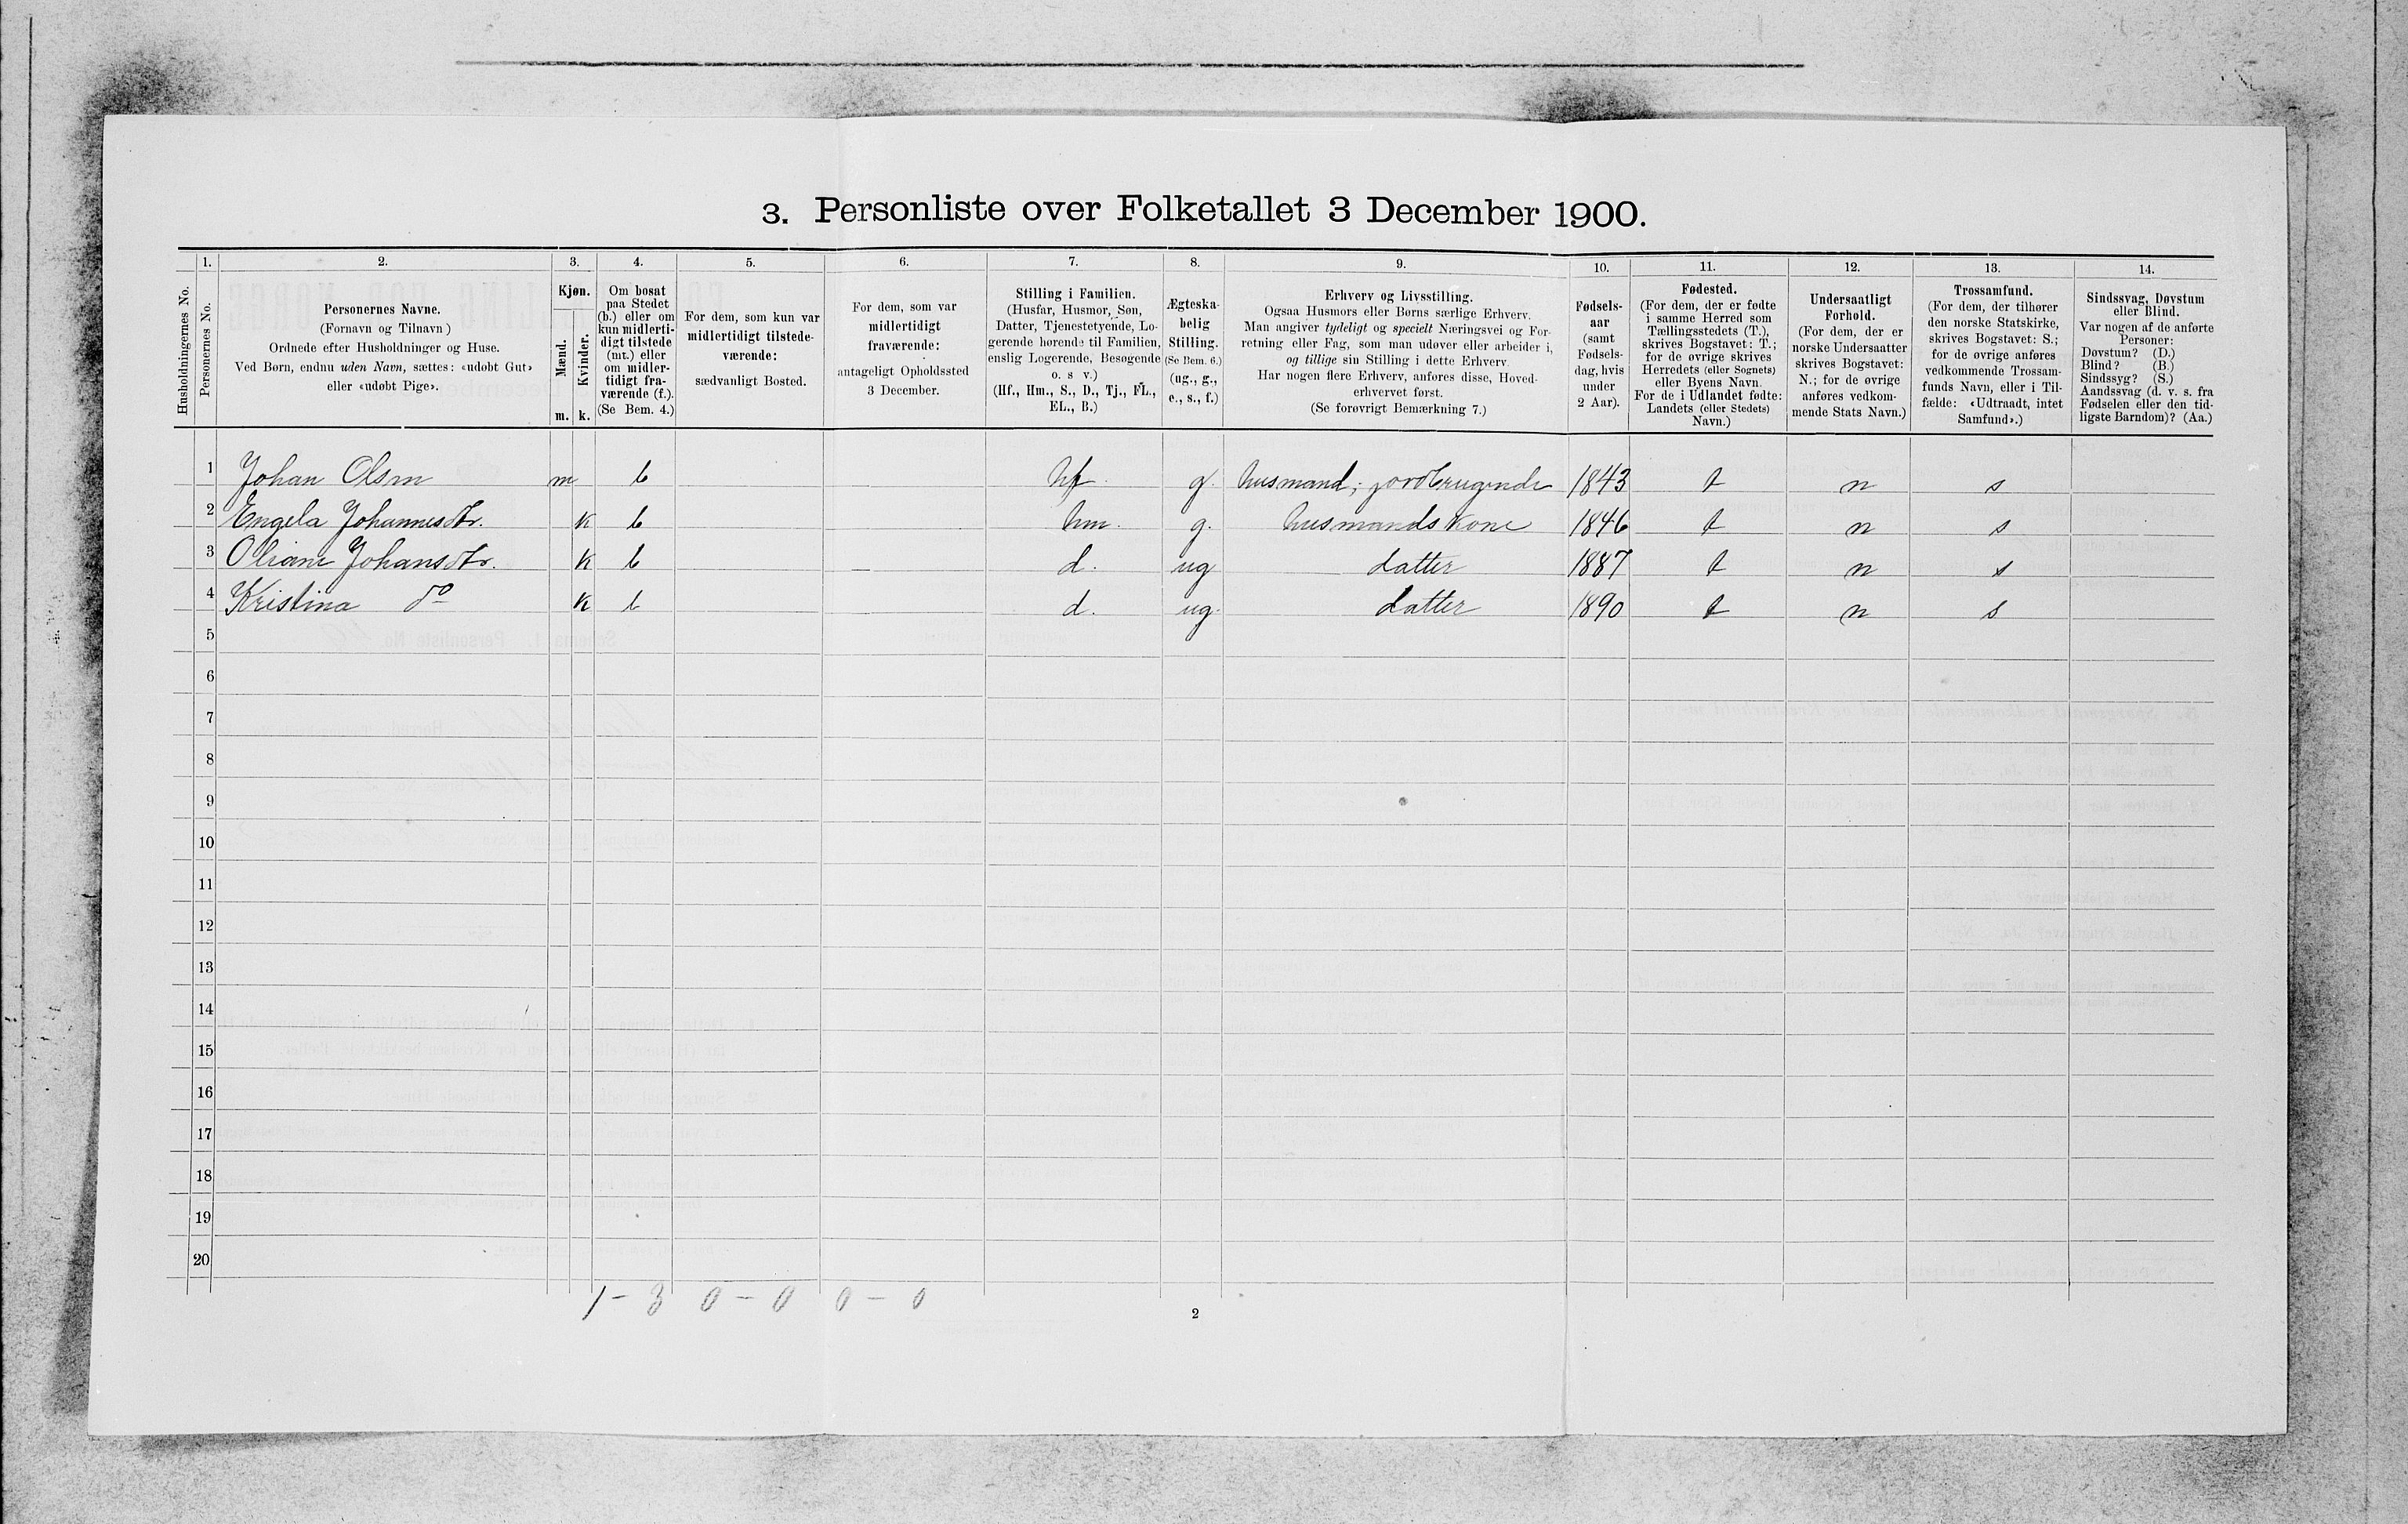 3. Personliste over Folketallet 3 December 1900.
1. 2. 3. 4. 5. 6. 7. 8. 9. 10. 11. 12. 13. 14.
Husholdningernes No.
Personernes No.
Personernes Navne.
(Fornavn og Tilnavn)
Ordnede efter Husholdninger og Huse.
Ved Børn, endnu uden Navn, sættes: «udøbt Gut»
eller «udøbt Pige».
Kjøn.
Mænd.
Kvinder.
m. k.
Om bosat
paa Stedet
(b.) eller om
kun midlerti-
digt tilstede
(mt.) eller
om midler-
tidigt fra-
værende (f.).
(Se Bem. 4.)
For dem, som kun var
midlertidigt tilstede-
værende:
sædvanligt Bosted.
For dem, som var
midlertidigt
fraværende:
antageligt Opholdssted
3 December.
Stilling i Familien.
(Husfar, Husmor, Søn,
Datter, Tjenestetyende, Lo-
gerende hørende til Familien,
enslig Logerende, Besøgende
o. s v.)
(Hf., Hm., S., D., Tj., FL.,
EL., B.)
Ægteska-
belig
Stilling.
(Se Bem. 6.)
(ug., g.,
e., s., f.)
Erhverv og Livsstilling.
Ogsaa Husmors eller Børns særlige Erhverv.
Man angiver tydeligt og specielt Næringsvei og For-
retning eller Fag, som man udøver eller arbeider i,
og tillige sin Stilling i dette Erhverv.
Har nogen flere Erhverv, anføres disse, Hoved-
erhvervet først.
(Se forøvrigt Bemærkning 7.)
Fødsels-
aar
(samt
Fødsels-
dag, hvis
under
2 Aar).
Fødested.
(For dem, der er fødte
i samme Herred som
Tællingsstedets (T.),
skrives Bogstavet: T.;
for de øvrige skrives
Herredets (eller Sognets)
eller Byens Navn.
For de i Udlandet fødte:
Landets (eller Stedets)
Navn.)
Undersaatligt
Forhold.
(For dem, der er
norske Undersaatter
skrives Bogstavet:
N.; for de øvrige
anføres vedkom-
mende Stats Navn.)
Trossamfund.
(For dem, der tilhører
den norske Statskirke,
skrives Bogstavet: S.;
for de øvrige anføres
vedkommende Trossam-
funds Navn, eller i Til-
fælde: «Udtraadt, intet
Samfund».)
Sindssvag, Døvstum
eller Blind.
Var nogen af de anførte
Personer:
Døvstum? (D.)
Blind? (B.)
Sindssyg? (S.)
Aandssvag (d. v. s. fra
Fødselen eller den tid-
ligste Barndom)? (Aa.)
1 Johan Olsen m b hf. g. husmand; jordbrugende 1843 t n s
2 Engela Johannesdtr. k b hm. g. husmandskone 1846 t n s
3 Oliane Johansdtr. k b — d. ug datter 1887 t n s
4 Kristina do k b d. ug. datter 1890 t n s
5
6
7
8
9
10
11
12
13
14
15
16
17
18
19
20
1 – 3 0 – 0 0 – 0
2